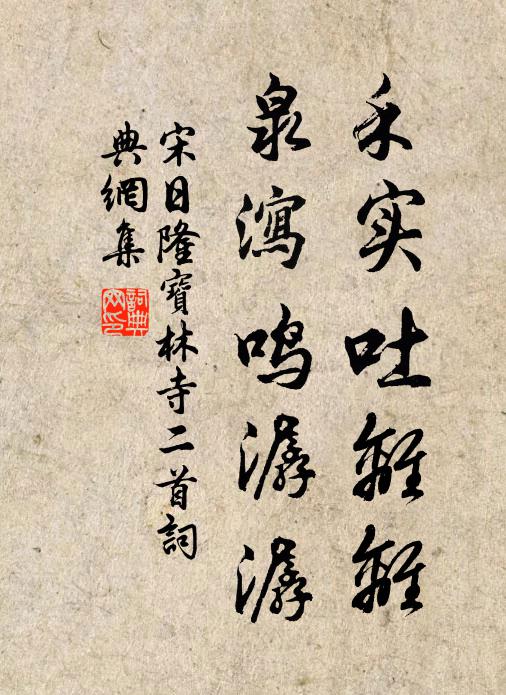 禾实吐離離
泉瀉鸣潺潺
宋日隆寶林寺二首詞
典網集
詞典
网印